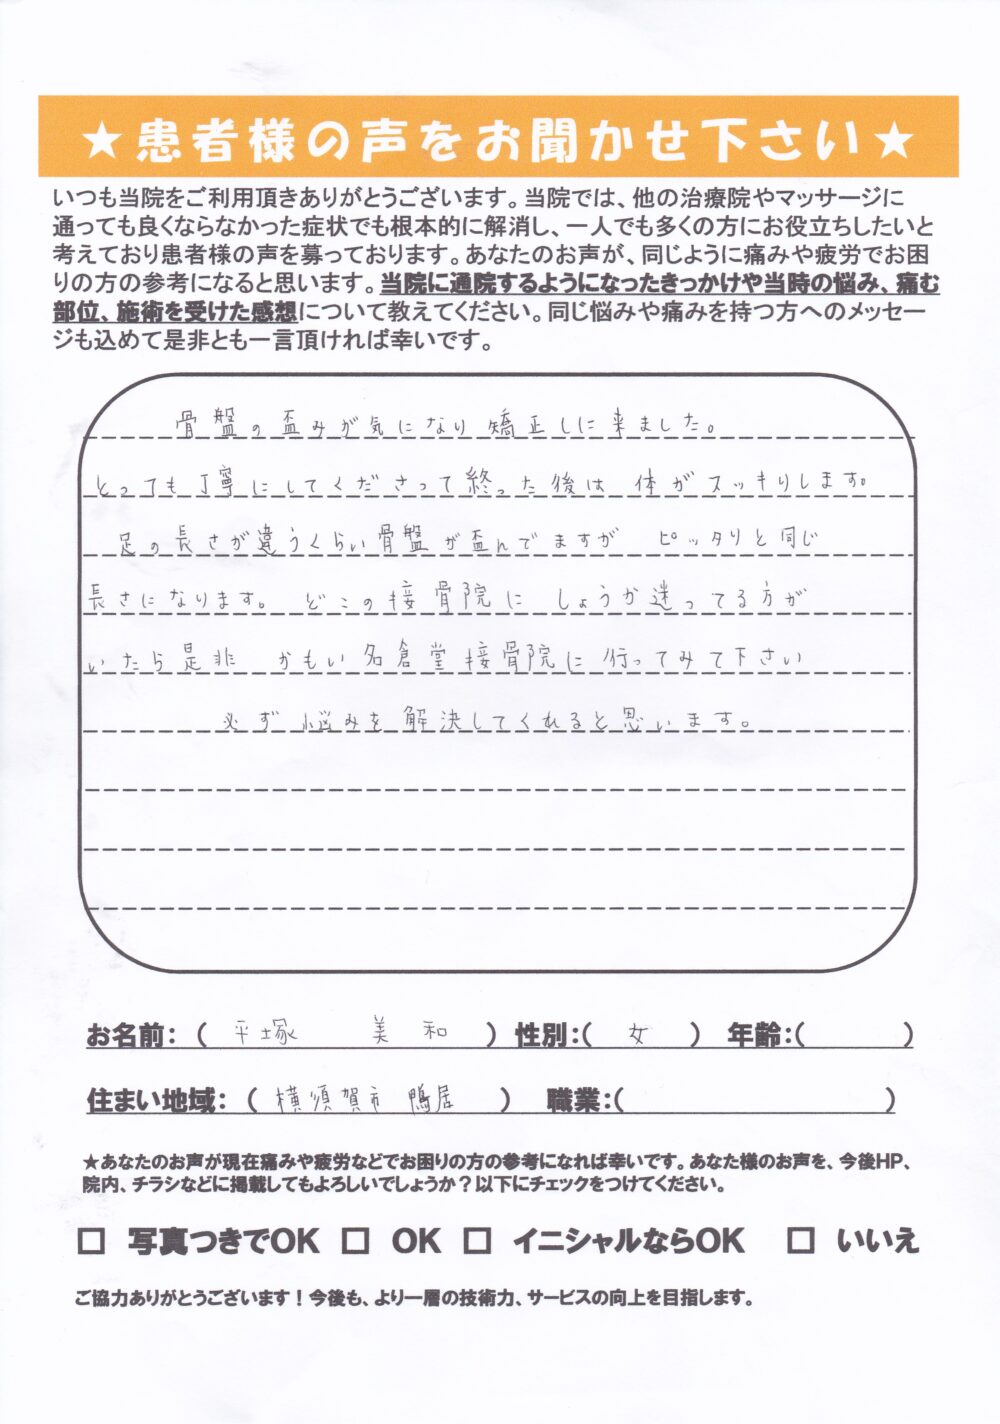 ★患者様の声をお聞かせ下さい★
いつも当院をご利用頂きありがとうございます。当院では、他の治療院やマッサージに
通っても良くならなかった症状でも根本的に解消し、一人でも多くの方にお役立ちしたいと
考えており患者様の声を募っております。あなたのお声が、同じように痛みや疲労でお困
りの方の参考になると思います。当院に通院するようになったきっかけや当時の悩み、痛む
部位、施術を受けた感想について教えてください。同じ悩みや痛みを持つ方へのメッセー
ジも込めて是非とも一言頂ければ幸いです。
骨盤の歪みが気になり 矯正しに来ました。
とっても丁寧にしてくださって終った後は 体がスッキリします。
足の長さが違うくらい骨盤が歪んでますが ピッタリと同じ
長さになります。 どこの接骨院に しようか迷ってる方が
いたら是非 かもい名倉堂接骨院に行ってみて下さい
必ず 悩みを解決してくれると思います。
お名前：（ 平塚 美和 ） 性別：（ 女 ） 年齢：（ ）
住まい地域：（ 横須賀市 鴨居 ） 職業：（ ）
★あなたのお声が現在痛みや疲労などでお困りの方の参考になれば幸いです。あなた様のお声を、今後HP、
院内、チラシなどに掲載してもよろしいでしょうか？以下にチェックをつけてください。
□ 写真つきでOK □ OK □ イニシャルならOK □ いいえ
ご協力ありがとうございます！今後も、より一層の技術力、サービスの向上を目指します。